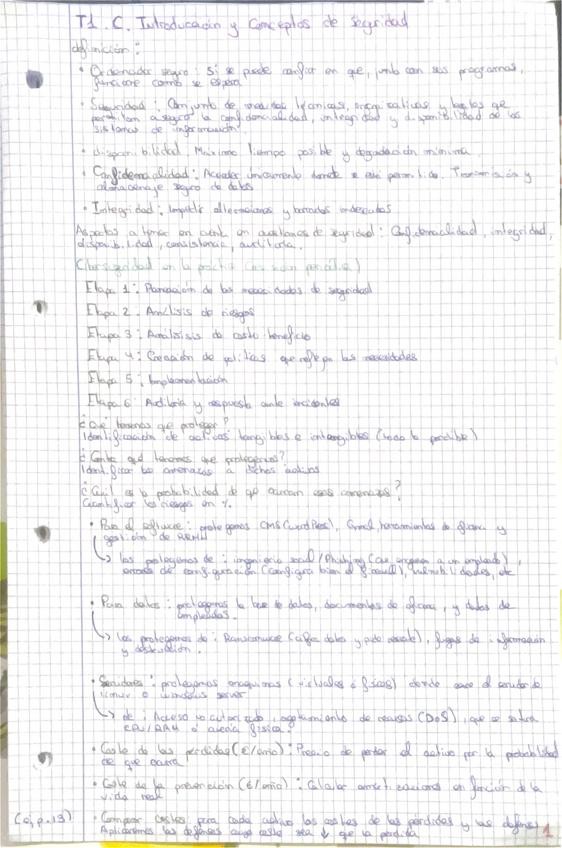 T1. C. Introducción y Conceptos de Seguridad
definición:
• Ordenador seguro: Si se puede confiar en que, junto con sus programas,
funcione como se espera
• Seguridad: Conjunto de medidas técnicas, organizativas y legales que
permitan asegurar la confidencialidad, integridad y disponibilidad de los
sistemas de información.
• disponibilidad: Máximo tiempo posible y degradación mínima.
• Confidencialidad: Acceder únicamente donde se esté permitido. Transmisión y
almacenaje seguro de datos
• Integridad: Impedir alteraciones y borrados indeseados
Aspectos a tener en cuenta en cuestiones de seguridad: Confidencialidad, integridad,
disponibilidad, consistencia, auditoría.
Ciberseguridad en la práctica
Etapa 1: Planeación de las necesidades de seguridad
Etapa 2: Análisis de riesgos
Etapa 3: Análisis de costo beneficio
Etapa 4: Creación de políticas que reflejen las necesidades
Etapa 5: Implementación
Etapa 6: Auditoría y respuesta ante incidentes
¿Qué tenemos que proteger?
Identificación de activos tangibles e intangibles (todo lo perdible)
¿Contra qué tenemos que protegernos?
Identificar las amenazas a dichos activos
¿Cuál es la probabilidad de que ocurran esas amenazas?
Cuantificar los riesgos en %.
• Para el software: protegemos CMS (WordPress), Gmail, herramientas de oficina y
gestión de RRHH
↳ los protegemos de: ingeniería social / Phishing (que engañen a un empleado),
errores de configuración (configurar bien el firewall), vulnerabilidades, etc
• Para datos: protegemos la base de datos, documentos de oficina, y datos de
empleados.
↳ los protegemos de: Ransomware (cifra datos y pide rescate), fugas de información
y destrucción.
• Servidores: protegemos máquinas (virtuales o físicas) donde corre el servidor de
linux o windows server
↳ de: Acceso no autorizado, agotamiento de recursos (DoS), que se sature
CPU/RAM o avería física.
• Coste de las pérdidas (€/año): Precio de perder el activo por la probabilidad
de que ocurra
• Coste de la prevención (€/año): Calcular en función de la
vida real
(ej p.13) • Comparar costes para cada activo los costes de las pérdidas y las defensas
Aplicaremos las defensas cuyo coste sea ↓ que la pérdida
1